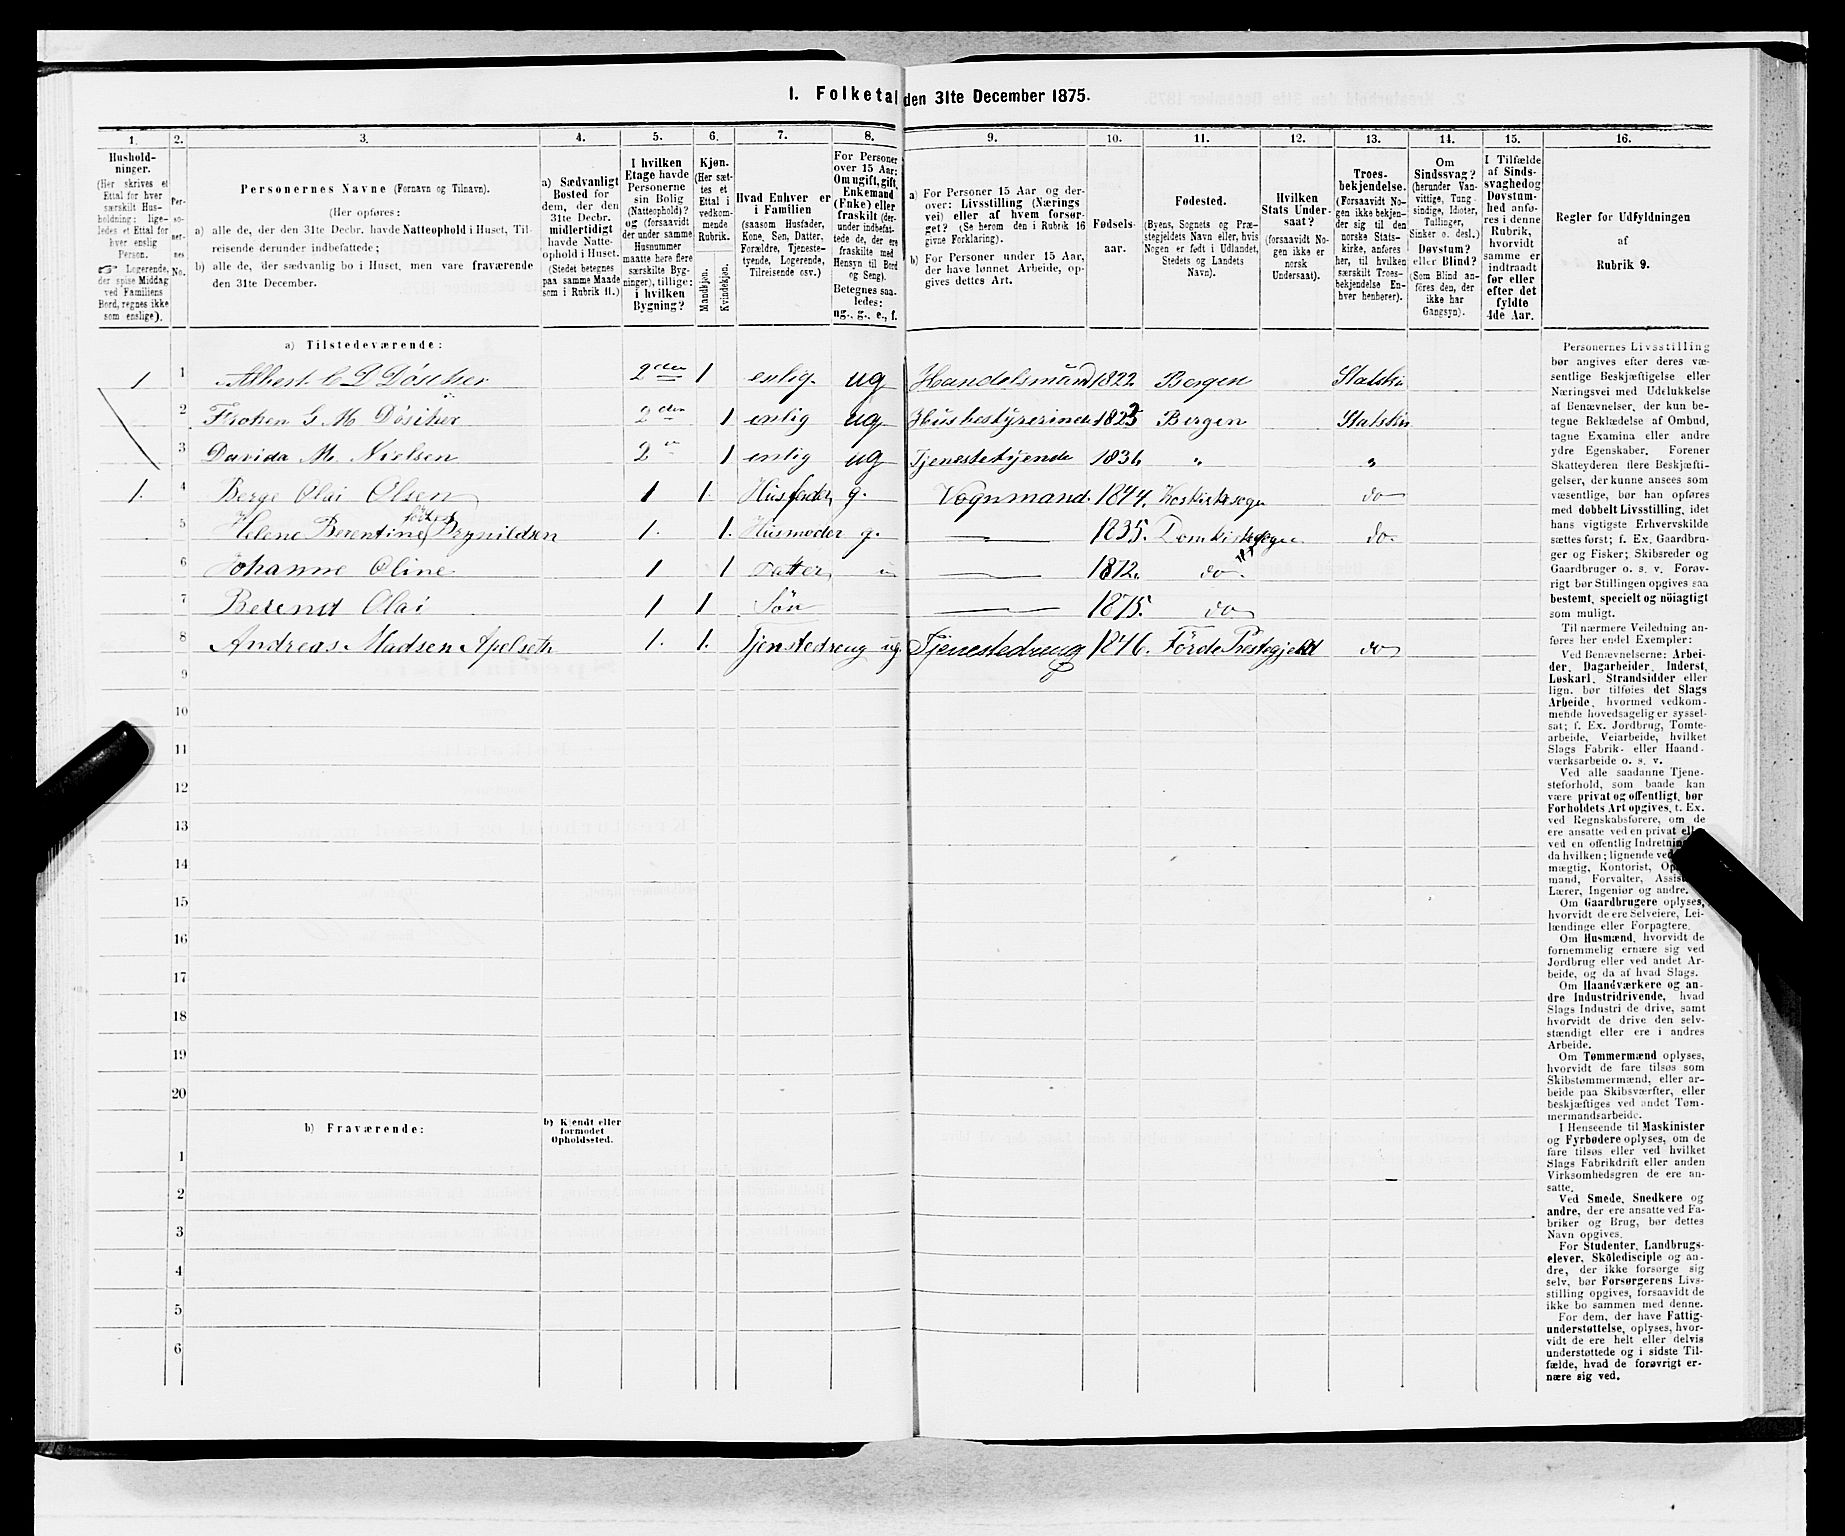 1. Folketal den 31te December 1875.
1. 2. 3. 4. 5. 6. 7. 8. 9. 10. 11. 12. 13. 14. 15. 16.
Hushold-
ninger.
(Her skrives et
Ettal for hver
særskilt Hus-
holdning; lige-
ledes et Ettal for
hver enslig
Person.
☞ Logerende,
der spise Middag
ved Familiens
Bord, regnes ikke
som enslige).
Per-
so-
ner-
nes
No.
Personernes Navne (Fornavn og Tilnavn).
(Her opføres:
a) alle de, der den 31te Decbr. havde Natteophold i Huset, Til-
reisende derunder indbefattede;
b) alle de, der sædvanlig bo i Huset, men vare fraværende
den 31te December.
a) Sædvanligt
Bosted for
dem, der den
31te Decbr.
midlertidigt
havde Natte-
ophold i Huset.
(Stedet betegnes
paa samme Maade
som i Rubrik 11.)
I hvilken
Etage havde
Personerne
sin Bolig
(Natteophold)?
og (forsaavidt
der under samme
Husnummer
maatte høre flere
særskilte Byg-
ninger), tillige:
i hvilken
Bygning?
Kjøn.
(Her sæt-
tes et
Ettal i
vedkom-
mende
Rubrik.
Mandkjøn.
Kvindekjøn.
Hvad Enhver er
i Familien
(saasom Husfader,
Kone, Søn, Datter,
Forældre, Tjeneste-
tyende, Logerende,
Tilreisende osv.)
For Personer
over 15 Aar:
Om ugift, gift,
Enkemand
(Enke) eller
fraskilt (der-
under indbefat-
tede de, der ere
fraskilte med
Hensyn til Bord
og Seng).
Betegnes saa-
ledes:
ug., g., e., f.
a) For Personer 15 Aar og der-
over: Livsstilling (Nærings
vei) eller af hvem forsør-
get? (Se herom den i Rubrik 16
givne Forklaring).
b) For Personer under 15 Aar,
der have lønnet Arbeide, op-
gives dettes Art.
Fødsels-
aar.
Fødested.
(Byens, Sognets og Præ-
stegjeldets Navn eller, hvis
Nogen er født i Udlandet,
Stedets og Landets
Navn).
Hvilken
Stats Under-
saat?
(forsaavidt No-
gen ikke er
norsk
Undersaat).
Troes-
bekjendelse.
(Forsaavidt No-
gen ikke bekjen-
der sig til den
norske Stats-
kirke, anføres
her, til hvilken
særskilt Troes-
bekjendelse En-
hver henhører).
Om
Sindssvag?
(herunder Van-
vittige, Tung-
sindige, Idioter,
Tullinger,
Sinker o. desl.)
Døvstum?
eller Blind?
(Som Blind an-
føres den, der
ikke har
Gangsyn).
I Tilfælde
af Sinds-
svaghed og
Døvstum-
hed anfø-
res i denne
Rubrik,
hvorvidt
samme er
indtraadt
før eller
efter det
fyldte
4de Aar.
Regler for Udfyldningen
af
Rubrik 9.
a) Tilstedeværende:
1 1 Albert C D Döscher 2den 1 enlig ug Handelsmand 1822 Bergen Statskir
2 Frøken G M Döscher 2den 1 enlig ug Husbestyrerinde 1825 Bergen Statskir
3 Davida M. Nielsen 2 1 enlig ug Tjenestetyende 1836 " "
1. 4 Berge Olai Olsen 1 1. Husfader g. Vognmand. 1844. Korskirkesogn do
5 Helene Berentine født Brynildsen 1. 1. Husmoder g. — 1835. Domkirkesogn do
6 Johanne Oline 1 1 Datter — 1872. do
7 Berend Olai 1 1 Søn — 1875. do
8 Andreas Madsen Apelseth 1. 1. Tjenstedreng ug. Tjenestedreng 1846. Förde Prestegjeld do
9
10
11
12
13
14
15
16
17
18
19
20
b) Fraværende:
b) Kjendt eller
formodet
Opholdssted.
1
2
3
4
5
6
Personernes Livsstilling
bør angives efter deres væ-
sentlige Beskjæftigelse eller
Næringsvei med Udelukkelse
af Benævnelser, der kun be-
tegne Beklædelse af Ombud,
tagne Examina eller andre
ydre Egenskaber. Forener
Skatteyderen flere Beskjæfti-
gelser, der kunne ansees som
væsentlige, bør han opføres
med dobbelt Livsstilling, idet
hans vigtigste Erhvervskilde
sættes først; f. Ex. Gaardbru-
ger og Fisker; Skibsreder og
Gaardbruger o. s. v. Forøv-
rigt bør Stillingen opgives saa
bestemt, specielt og nöiagtigt
som muligt.
Til nærmere Veiledning an-
føres her endel Exempler:
Ved Benævnelserne: Arbei-
der, Dagarbeider, Inderst,
Løskarl, Strandsidder eller
lign. bør tilføies det Slags
Arbeide, hvormed vedkom-
mende hovedsagelig er syssel-
sat; f. Ex. Jordbrug, Tomte-
arbeide, Veiarbeide, hvilket
Slags Fabrik- eller Haand-
værksarbeide o. s. v.
Ved alle saadanne Tjene-
steforhold, som baade kan
være privat og offentligt, bør
Forholdets Art opgives, t. Ex.
ved Regnskabsførere, om de
ere ansatte ved en privat
ved en offentlig
da hvilken; lignende
mægtig, Kontorist,
mand, Forvalter,
Lærer, Ingeniør og andre.
Om Gaardbrugere oplyses,
hvorvidt de ere Selveiere, Lei-
lændinge eller Forpagtere.
Om Husmænd, hvorvidt de
fornemmelig ernære sig ved
Jordbrug eller ved andet Ar-
beide, og da af hvad Slags.
Om Haandværkere og an-
dre Industridrivende, hvad
Slags Industri de drive, samt
hvorvidt de drive den selv-
stændigt eller ere i andres
Arbeide.
Om Tømmermænd oplyses,
hvorvidt de fare tilsøs som
Skibstømmermænd, eller ar-
beide paa Skibsværfter, eller
beskjæftiges ved andet Tøm-
mermandsarbeide.
I Henseende til Maskinister
og Fyrbødere oplyses, om de
fare tilsøs eller ved hvilket
Slags Fabrikdrift eller anden
Virksomhedsgren de ere an-
satte.
Ved Smede, Snedkere og
andre, der ere ansatte ved Fa-
briker og Brug, bør dettes
Navn opgives.
For Studenter, Landbrugs-
elever, Skoledisciple og an-
dre, der ikke forsørge sig
selv, bør Forsørgerens Livs-
stilling opgives, forsaavidt de
ikke bo sammen med denne.
For dem, der have Fattig-
understøttelse, oplyses, hvor-
vidt de ere helt eller delvis
understøttede og i sidste Til-
fælde, hvad de forøvrigt er-
nære sig ved.